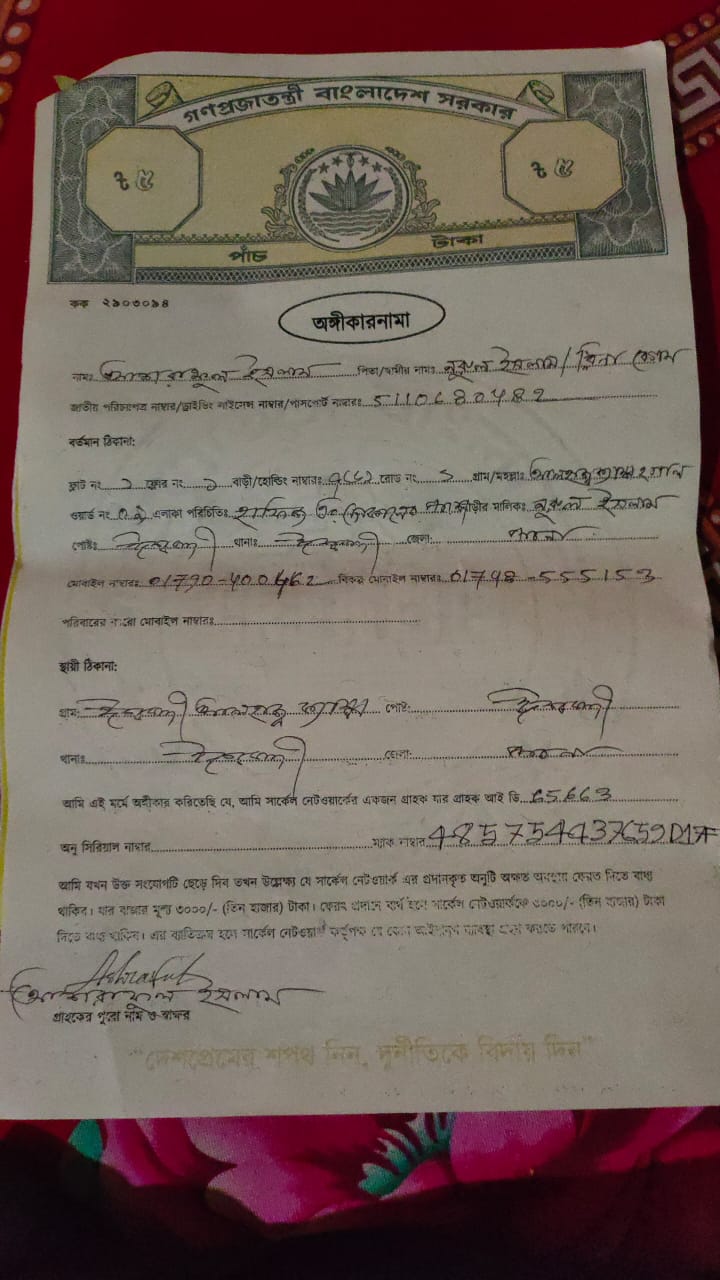 গণপ্রজাতন্ত্রী বাংলাদেশ সরকার
৳ ৫
৳ ৫
পাঁচ টাকা
কক ২৯০৩০৯৪
অঙ্গীকারনামা
নামঃ আশরাফুল ইসলাম পিতা/স্বামীর নামঃ নুরুল ইসলাম/
জাতীয় পরিচয়পত্র নাম্বার/ড্রাইভিং লাইসেন্স নাম্বার/পাসপোর্ট নাম্বারঃ 5110680482
বর্তমান ঠিকানা:
ফ্লাট নং ফ্লোর নং বাড়ী/হোল্ডিং নাম্বারঃ রোড নং গ্রাম/মহল্লাঃ
ওয়ার্ড নং এলাকা পরিচিতিঃ বাড়ীর মালিকঃ নুরুল ইসলাম
পোষ্টঃ ঈশ্বরদী থানাঃ ঈশ্বরদী জেলাঃ পাবনা
মোবাইল নাম্বারঃ 01790-400462 বিকল্প মোবাইল নাম্বারঃ 01748-555153
পরিবারের কারো মোবাইল নাম্বারঃ
স্থায়ী ঠিকানা:
গ্রামঃ ঈশ্বরদী পোষ্টঃ ঈশ্বরদী
থানাঃ ঈশ্বরদী জেলাঃ পাবনা
আমি এই মর্মে অঙ্গীকার করিতেছি যে, আমি সার্কেল নেটওয়ার্কের একজন গ্রাহক যার গ্রাহক আই ডি 65663
অনু সিরিয়াল নাম্বার ম্যাক নাম্বার 485754437659D17F
আমি যখন উক্ত সংযোগটি ছেড়ে দিব তখন উল্লেখ্য যে সার্কেল নেটওয়ার্ক এর প্রদানকৃত অনুটি অক্ষত অবস্থায় ফেরত দিতে বাধ্য
থাকিব। যার বাজার মূল্য ৩০০০/- (তিন হাজার) টাকা। ফেরৎ প্রদানে ব্যর্থ হলে সার্কেল নেটওয়ার্ককে ৩০০০/- (তিন হাজার) টাকা
দিতে বাধ্য থাকিব। এর ব্যতিক্রম হলে সার্কেল নেটওয়ার্ক কর্তৃপক্ষ যে কোন আইনানুগ ব্যবস্থা গ্রহণ করতে পারবে।
Ashraful
আশরাফুল ইসলাম
গ্রাহকের পুরো নাম ও স্বাক্ষর
"দেশপ্রেমের শপথ নিন, দুর্নীতিকে বিদায় দিন"